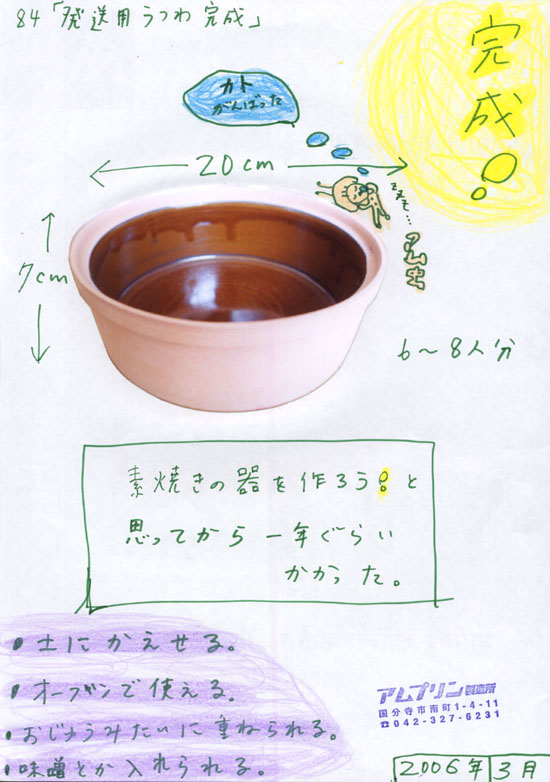 84「発送用うつわ完成」
完成!
カト
がんばった
20cm
エヌエ…
7cm
6〜8人分
素焼きの器を作ろう!と
思ってから一年ぐらい
かかった。
・土にかえせる。
・オーブンで使える。
・おじゅうみたいに重ねられる。
・味噌とか入れられる。
アムプリン製造所
国分寺市南町1-4-11
☎042-327-6231
2006年3月